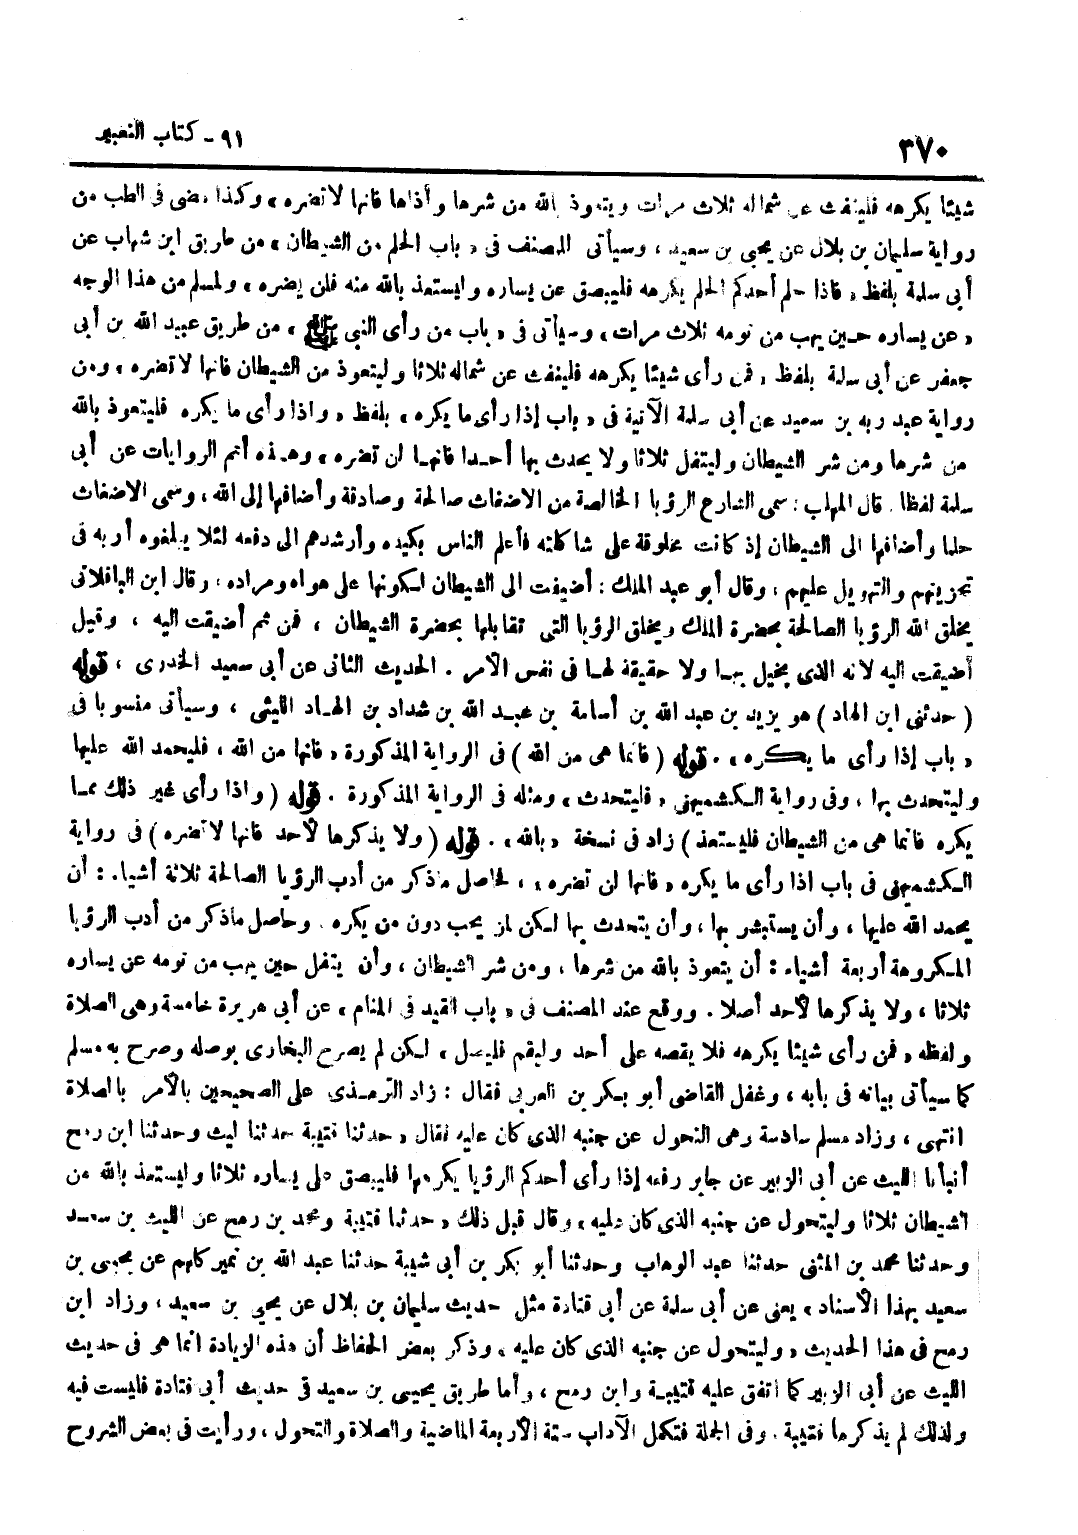 ٣٧٠
٩١ - كتاب التعبير
شيئا يكرهه فلينفث عن شماله ثلاث مرات ويتعوذ بالله من شرها وأذاها فانها لا تضره » وكذا مضى فى الطب من
رواية سليمان بن بلال عن يحيى بن سعيد ، وسيأتى للمصنف فى « باب الحلم من الشيطان » من طريق ابن شهاب عن
أبى سلمة بلفظ « فاذا حلم أحدكم الحلم يكرهه فليبصق عن يساره وليستعذ بالله منه فلن يضره » ولمسلم من هذا الوجه
« عن يساره حين يهب من نومه ثلاث مرات » وسيأتى فى « باب من رأى النبى ﷺ » من طريق عبيد الله بن أبى
جعفر عن أبى سلمة بلفظ « فمن رأى شيئا يكرهه فلينفث عن شماله ثلاثا وليتعوذ من الشيطان فانها لا تضره » ومن
رواية عبد ربه بن سعيد عن أبى سلمة الآتية فى « باب إذا رأى ما يكره » بلفظ « واذا رأى ما يكره فليتعوذ بالله
من شرها ومن شر الشيطان وليتفل ثلاثا ولا يحدث بها أحدا فانها لن تضره » وهذه أتم الروايات عن أبى
سلمة لفظا . قال المهلب : سمى الشارع الرؤيا الخالصة من الاضغاث صالحة وصادقة وأضافها إلى الله ، وسمى الاضغاث
حلما وأضافها الى الشيطان إذ كانت مخلوقة على شاكلته فأعلم الناس بكيده وأرشدهم الى دفعه لئلا يبلغوه أربه فى
تحزينهم والتهويل عليهم ، وقال أبو عبد الملك : أضيفت الى الشيطان لكونها على هواه ومراده ، وقال ابن الباقلانى
يخلق الله الرؤيا الصالحة بحضرة الملك ويخلق الرؤيا التى تقابلها بحضرة الشيطان ، فمن ثم أضيفت اليه ، وقيل
أضيفت اليه لانه الذى يخيل بها ولا حقيقة لها فى نفس الأمر . الحديث الثانى عن أبى سعيد الخدرى ، قوله
( حدثنى ابن الهاد ) هو يزيد بن عبد الله بن أسامة بن عبد الله بن شداد بن الهاد الليثى ، وسيأتى منسوبا فى
« باب إذا رأى ما يكره » . قوله ( فانما هى من الله ) فى الرواية المذكورة « فانها من الله ، فليحمد الله عليها
وليتحدث بها ، وفى رواية الكشميهنى « فليتحدث » ومثله فى الرواية المذكورة . قوله ( واذا رأى غير ذلك مما
يكره فانما هى من الشيطان فليستعذ ) زاد فى نسخة « بالله » . قوله ( ولا يذكرها لأحد فانها لا تضره ) فى رواية
الكشميهنى فى باب اذا رأى ما يكره « فانها لن تضره » ، فحاصل ماذكر من أدب الرؤيا الصالحة ثلاثة أشياء : أن
يحمد الله عليها ، وأن يستبشر بها ، وأن يتحدث بها لكن لمن يحب دون من يكره . وحاصل ماذكر من أدب الرؤيا
المكروهة أربعة أشياء : أن يتعوذ بالله من شرها ، ومن شر الشيطان ، وأن يتفل حين يهب من نومه عن يساره
ثلاثا ، ولا يذكرها لأحد أصلا . ووقع عند المصنف فى « باب القيد فى المنام » عن أبى هريرة خامسة وهى الصلاة
ولفظه « فمن رأى شيئا يكرهه فلا يقصه على أحد وليقم فليصل » لكن لم يصرح البخارى بوصله وصرح به مسلم
كما سيأتى بيانه فى بابه ، وغفل القاضى أبو بكر بن العربى فقال : زاد الترمذى على الصحيحين بالأمر بالصلاة
انتهى ، وزاد مسلم سادسة وهى التحول عن جنبه الذى كان عليه فقال « حدثنا قتيبة حدثنا ليث وحدثنا ابن رمح
أنبأنا الليث عن أبى الزبير عن جابر رفعه إذا رأى أحدكم الرؤيا يكرهها فليبصق على يساره ثلاثا وليستعذ بالله من
الشيطان ثلاثا وليتحول عن جنبه الذى كان عليه » وقال قبل ذلك « حدثنا قتيبة ومحمد بن رمح عن الليث بن سعد
وحدثنا محمد بن المثنى حدثنا عبد الوهاب وحدثنا أبو بكر بن أبى شيبة حدثنا عبد الله بن نمير كلهم عن يحيى بن
سعيد بهذا الأسناد » يعنى عن أبى سلمة عن أبى قتادة مثل حديث سليمان بن بلال عن يحيى بن سعيد ، وزاد ابن
رمح فى هذا الحديث « وليتحول عن جنبه الذى كان عليه » وذكر بعض الحفاظ أن هذه الزيادة انما هو فى حديث
الليث عن أبى الزبير كما اتفق عليه قتيبة وابن رمح ، وأما طريق يحيى بن سعيد فى حديث أبى قتادة فليست فيه
ولذلك لم يذكرها قتيبة . وفى الجملة فتكمل الآداب ستة الأربعة الماضية والصلاة والتحول ، ورأيت فى بعض الشروح